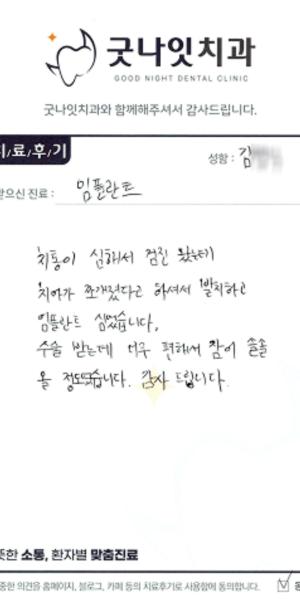 굿나잇치과
GOOD NIGHT DENTAL CLINIC
굿나잇치과와 함께해주셔서 감사드립니다.
치/료/후/기
성함 : 김
받으신 진료 : 임플란트
치통이 심해서 검진 왔는데
치아가 쪼개졌다고 하셔서 발치하고
임플란트 심었습니다.
수술 받는데 너무 편해서 잠이 솔솔
올 정도였습니다. 감사 드립니다.
뜻한 소통, 환자별 맞춤진료
중한 의견을 홈페이지, 블로그, 카페 등의 치료후기로 사용함에 동의합니다.